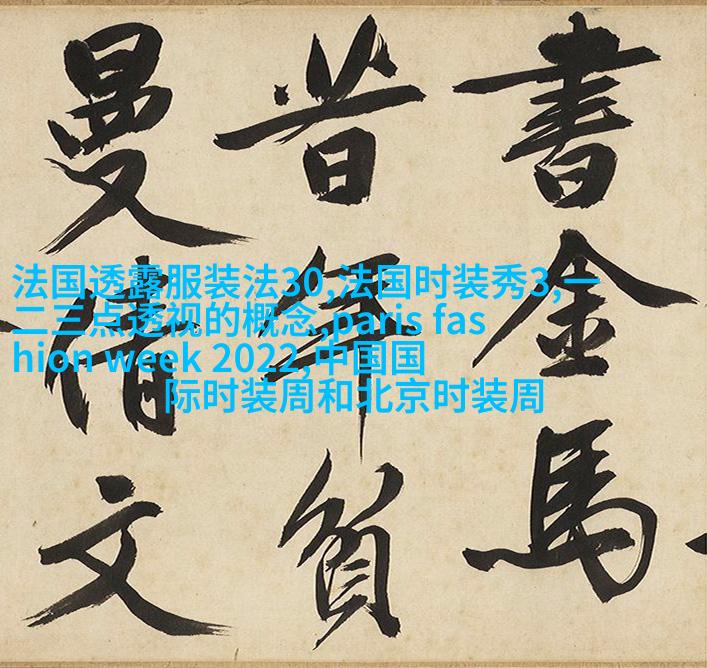 書金馬
昔年負
曼倩文
法国透露服装法30,法国时装秀3,一
二三点透视的概念,paris fas
hion week 2022,中国国
际时装周和北京时装周